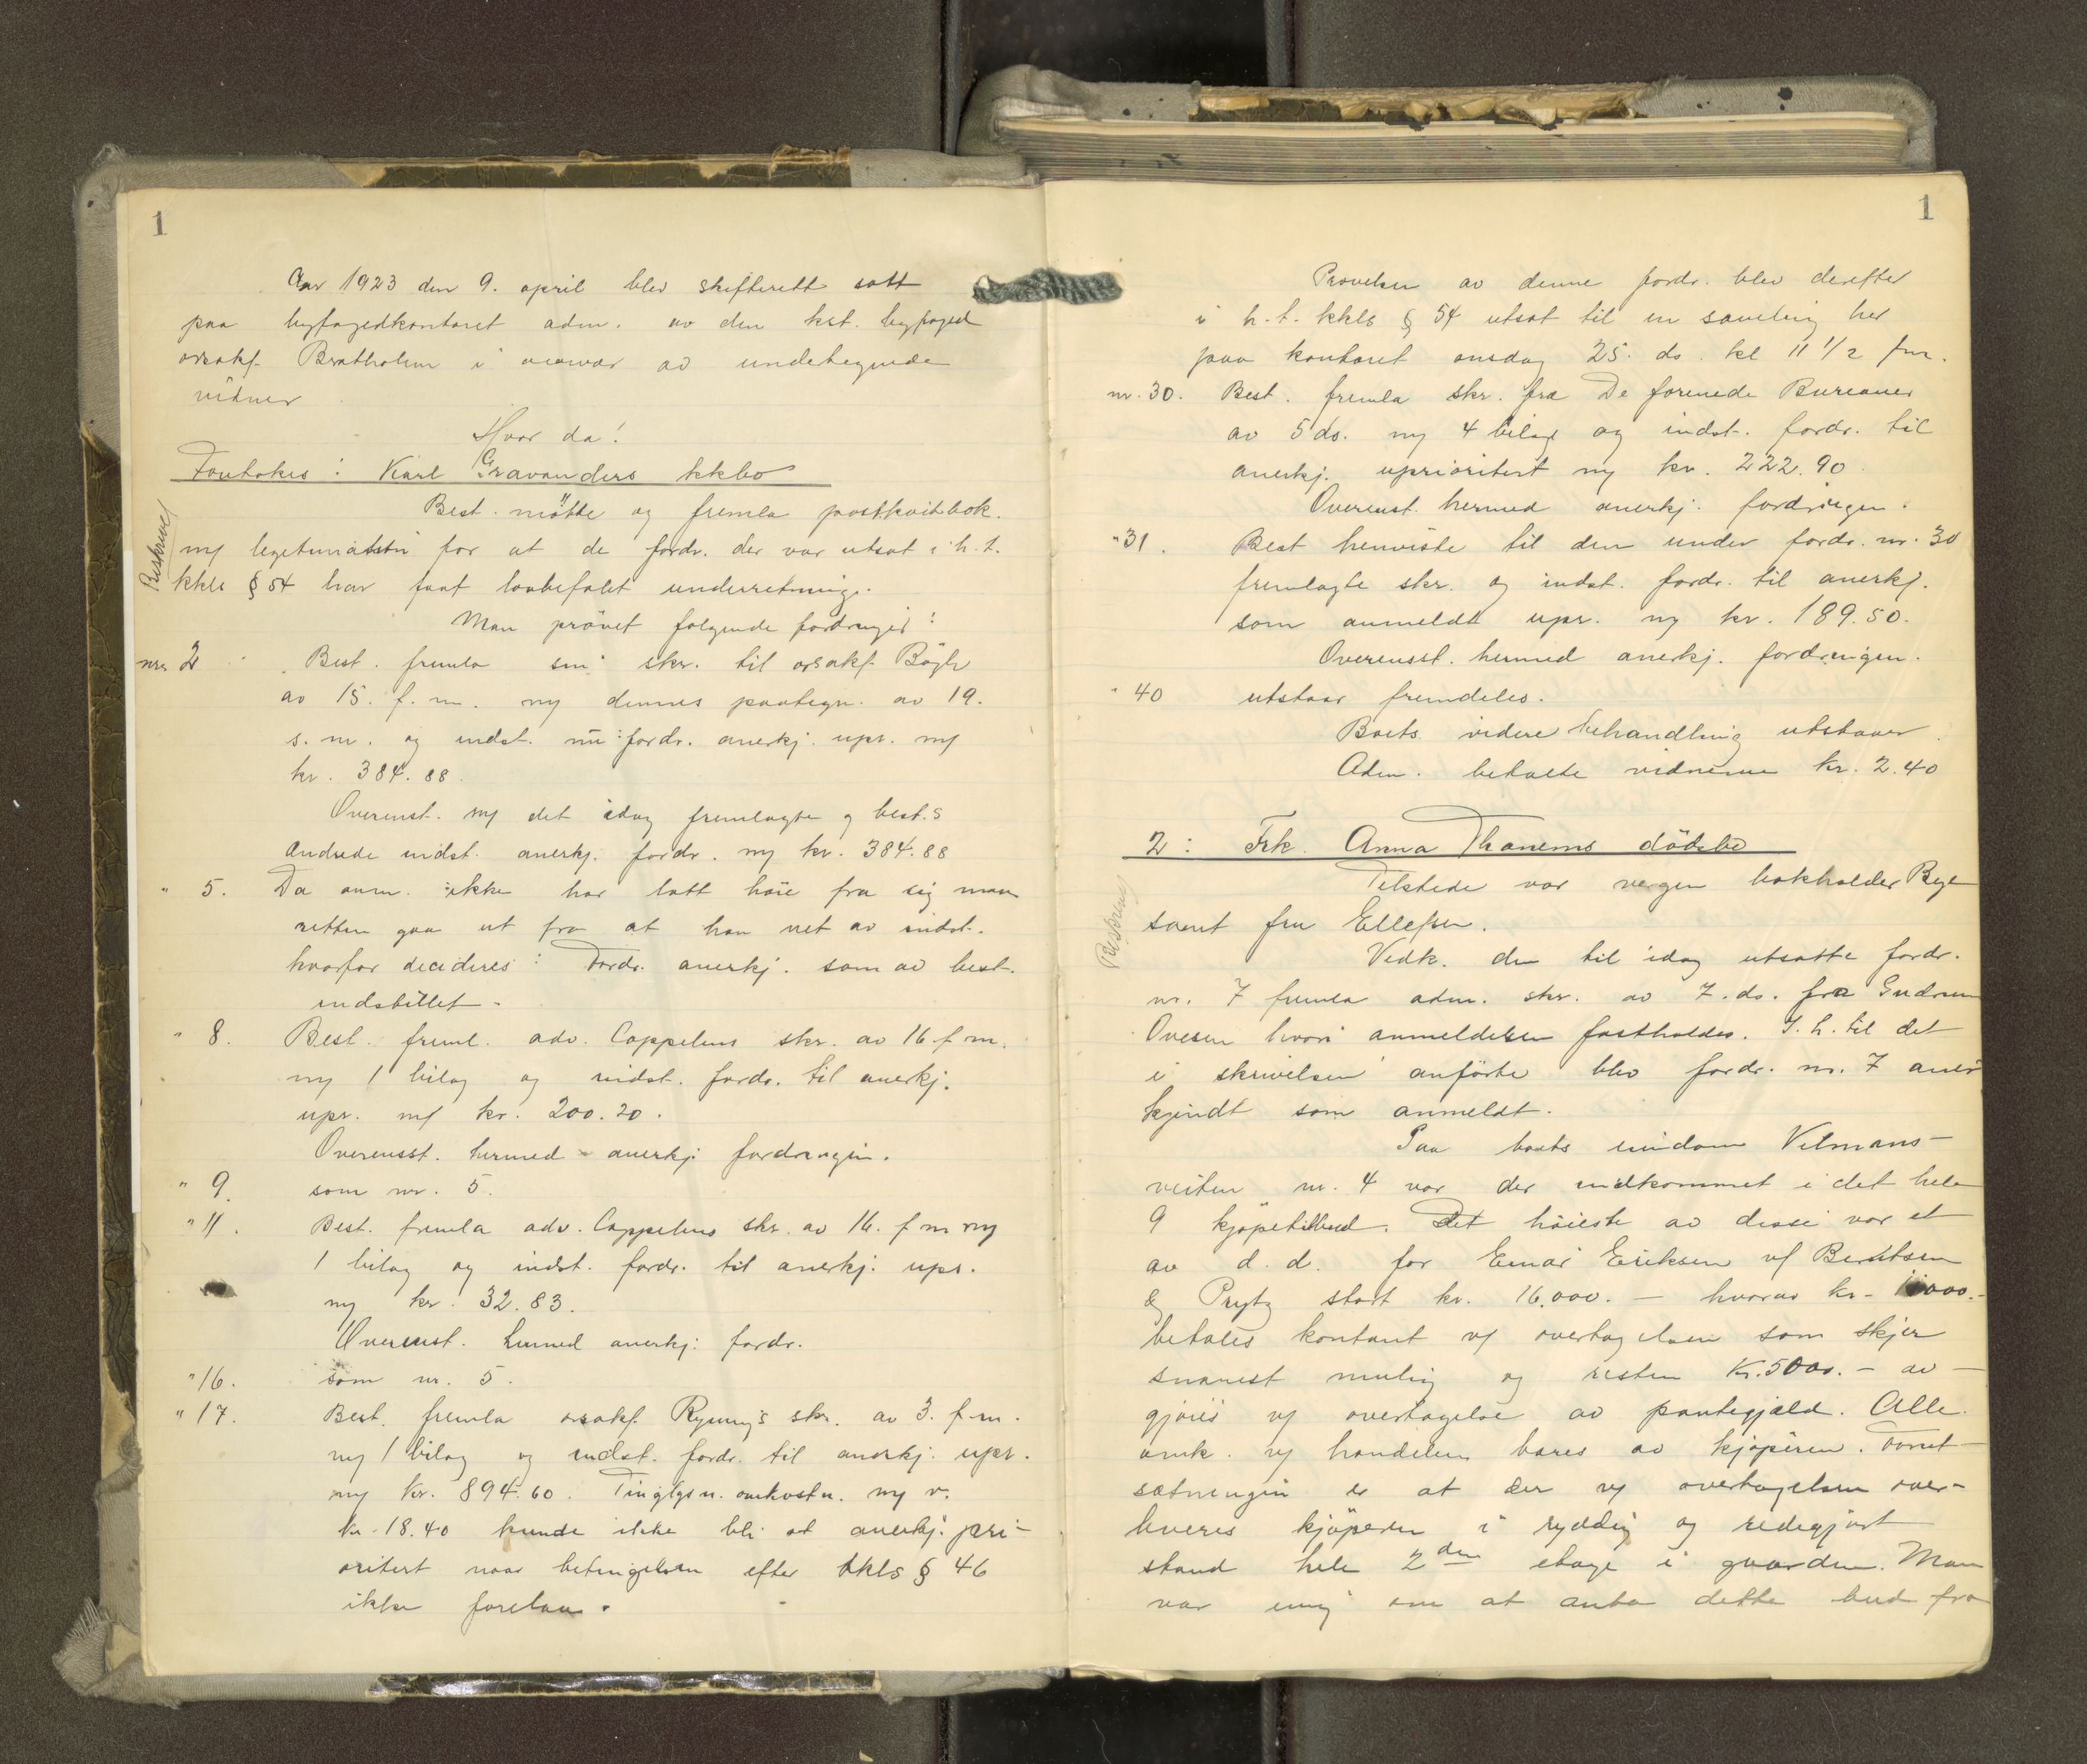 1
Aar 1923 den 9. april blev skifterett satt
paa byfogedkontoret adm. av den kst. byfoged
orsakf. Bratholm i nærvær av undertegnede
vidner
Hvor da!
Foretokes: Karl Gravanders kkbo
Beskrevet
Best. møtte og fremla postkvitbok.
mf legetimatstn for at de fordr. der var utsat i h.t.
kkls § 54 har faat lovbefalet underretning.
Man prøvet følgende fordringer:
nr. 2 Best. fremla sin skr. til orsakf. Bøgh
av 15. f. m. mf dennes paategn. av 19.
s. m. og indst. nu fordr. anerkj. upr. mf
kr. 384.88
Overenst. mf det idag fremlagte og best.s
ændrede indst. anerkj. fordr. mf kr. 384.88
" 5. Da anm. ikke har latt høre fra sig maa
retten gaa ut fra at han vet av indst.
hvorfor decideres: Fordr. anerkj. som av best.
indstillet.
" 8. Best. freml. adv. Cappelens skr. av 16 f m.
mf 1 bilag og indst. fordr. til anerkj.
upr. mf kr. 200.20.
Overensst. hermed anerkj. fordringen.
" 9. som nr. 5.
" 11. Best. fremla adv. Cappelens skr. av 16. f m mf
1 bilag og indst. fordr. til anerkj. upr.
mf kr. 32.83.
Overenst. hermed anerkj. fordr.
" 16. som nr. 5.
" 17. Best. fremla orsakf. Rynning's skr. av 3. f.m.
mf 1 bilag og indst. fordr. til anerkj. upr.
mf kr. 894.60. Tinglgsn. omkostn. mf v.
kr. 18.40 kunde ikke bli at anerkj. pri-
oritert naar betingelsen efter kkls § 46
ikke forelaa.
1
Prøvelsen av denne fordr. blev derefter
i h.t. kkls § 54 utsat til en samling her
paa kontoret onsdag 25. ds. kl 11 1/2 fm.
nr. 30. Best. fremla skr. fra De forenede Bureauer
av 5 ds. mf 4 bilag og indst. fordr. til
anerkj. uprioritert mf kr. 222.90
Overenst. hermed anerkj. fordringen.
" 31. Best henviste til den under fordr. nr. 30
fremlagte skr. og indst. fordr. til anerkj.
som anmeldt upr. mf kr. 189.50.
Overensst. hermed anerkj. fordringen.
" 40 utstaar fremdeles.
Boets videre behandling utstaar.
Adm. betalte vidnerne kr. 2.40
2: Frk. Anna Thanems dødsbo
Beskrevet
Tilstede var vergen bokholder Bye
samt fru Ellefsen.
Vedk. den til idag utsatte fordr.
nr. 7 fremla adm. skr. av 7. ds. fra Gudrun
Ovesen hvori anmeldelsen fastholdes. I. h. til det
i skrivelsen anførte blev fordr. nr. 7 aner
kjendt som anmeldt.
Paa boets eiendom Vilmans-
veiten nr. 4 var der indkommet i det hele
9 kjøpetilbud. Det høieste av disse var et
av d. d. for Einar Eriksen vf Berntsen
& Prytz stort kr. 16.000. - hvorav kr. 11000.-
betales kontant vf overtagelsen som skjer
snarest mulig og resten kr. 5000. - av-
gjøres vf overtagelse av pantegjæld. Alle
omk. vf handelen bæres av kjøperen. Forut-
sætningen er at der vf overtagelsen over-
leveres kjøperen i ryddig og redegjort
stand hele 2den etage i gaarden. Man
var enig om at anta dette bud fra